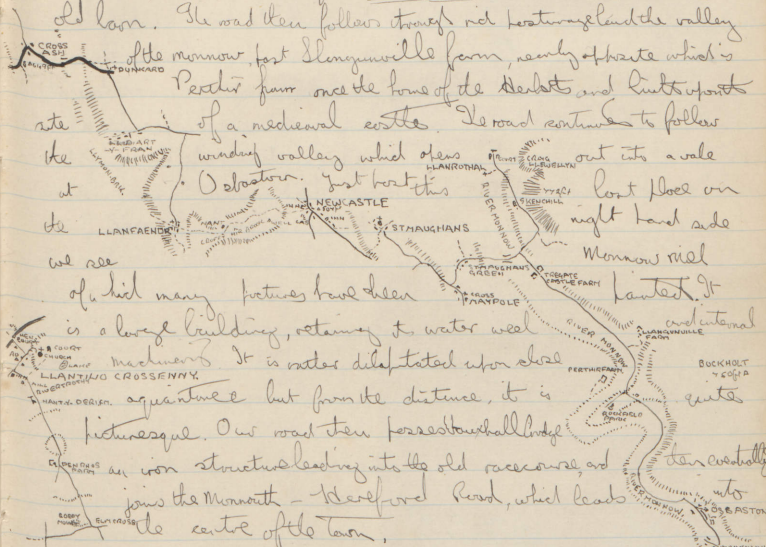 old barn. The road then follows through rich pasturage land the valley
of the monnow, past Llangunville farm, nearly opposite which is
Perthir farm once the home of the Herberts and built upon the
site of a medieval castle. The road continues to follow
the winding valley which opens out into a vale
at Osbaston. Just past this last place on
the right hand side
we see Monnow mill
of which many pictures have been painted. It
is a large building, retaining its water weel and internal
machinery. It is rather dilapitated upon close
aquaintnce but from the distance, it is quite
picturesque. Our road then passes Vauxhall bridge
an iron structure leading into the old racecourse, and then eventually
joins the Monmouth - Hereford Road, which leads into
the centre of the Town.
CROSS ASH
DUNKARD
LLANFAENOR
NEWCASTLE
INN
ST MAUGHANS
LLANROTHAL
CRAIG LLWELLYN
SKENCHILL
RIVER MONNOW
ST MAUGHANS GREEN
TREGATE CASTLE FARM
CROSS
MAYPOLE
RIVER MONNOW
LLANGUNVILLE FARM
PERTHIR FARM
ROCKFIELD PARK
BUCKHOLT
RIVER MONNOW
OSBASTON
COURT
CHURCH
LLANTILIO CROSSENNY
PENRHOS FARM
ELM CROSS